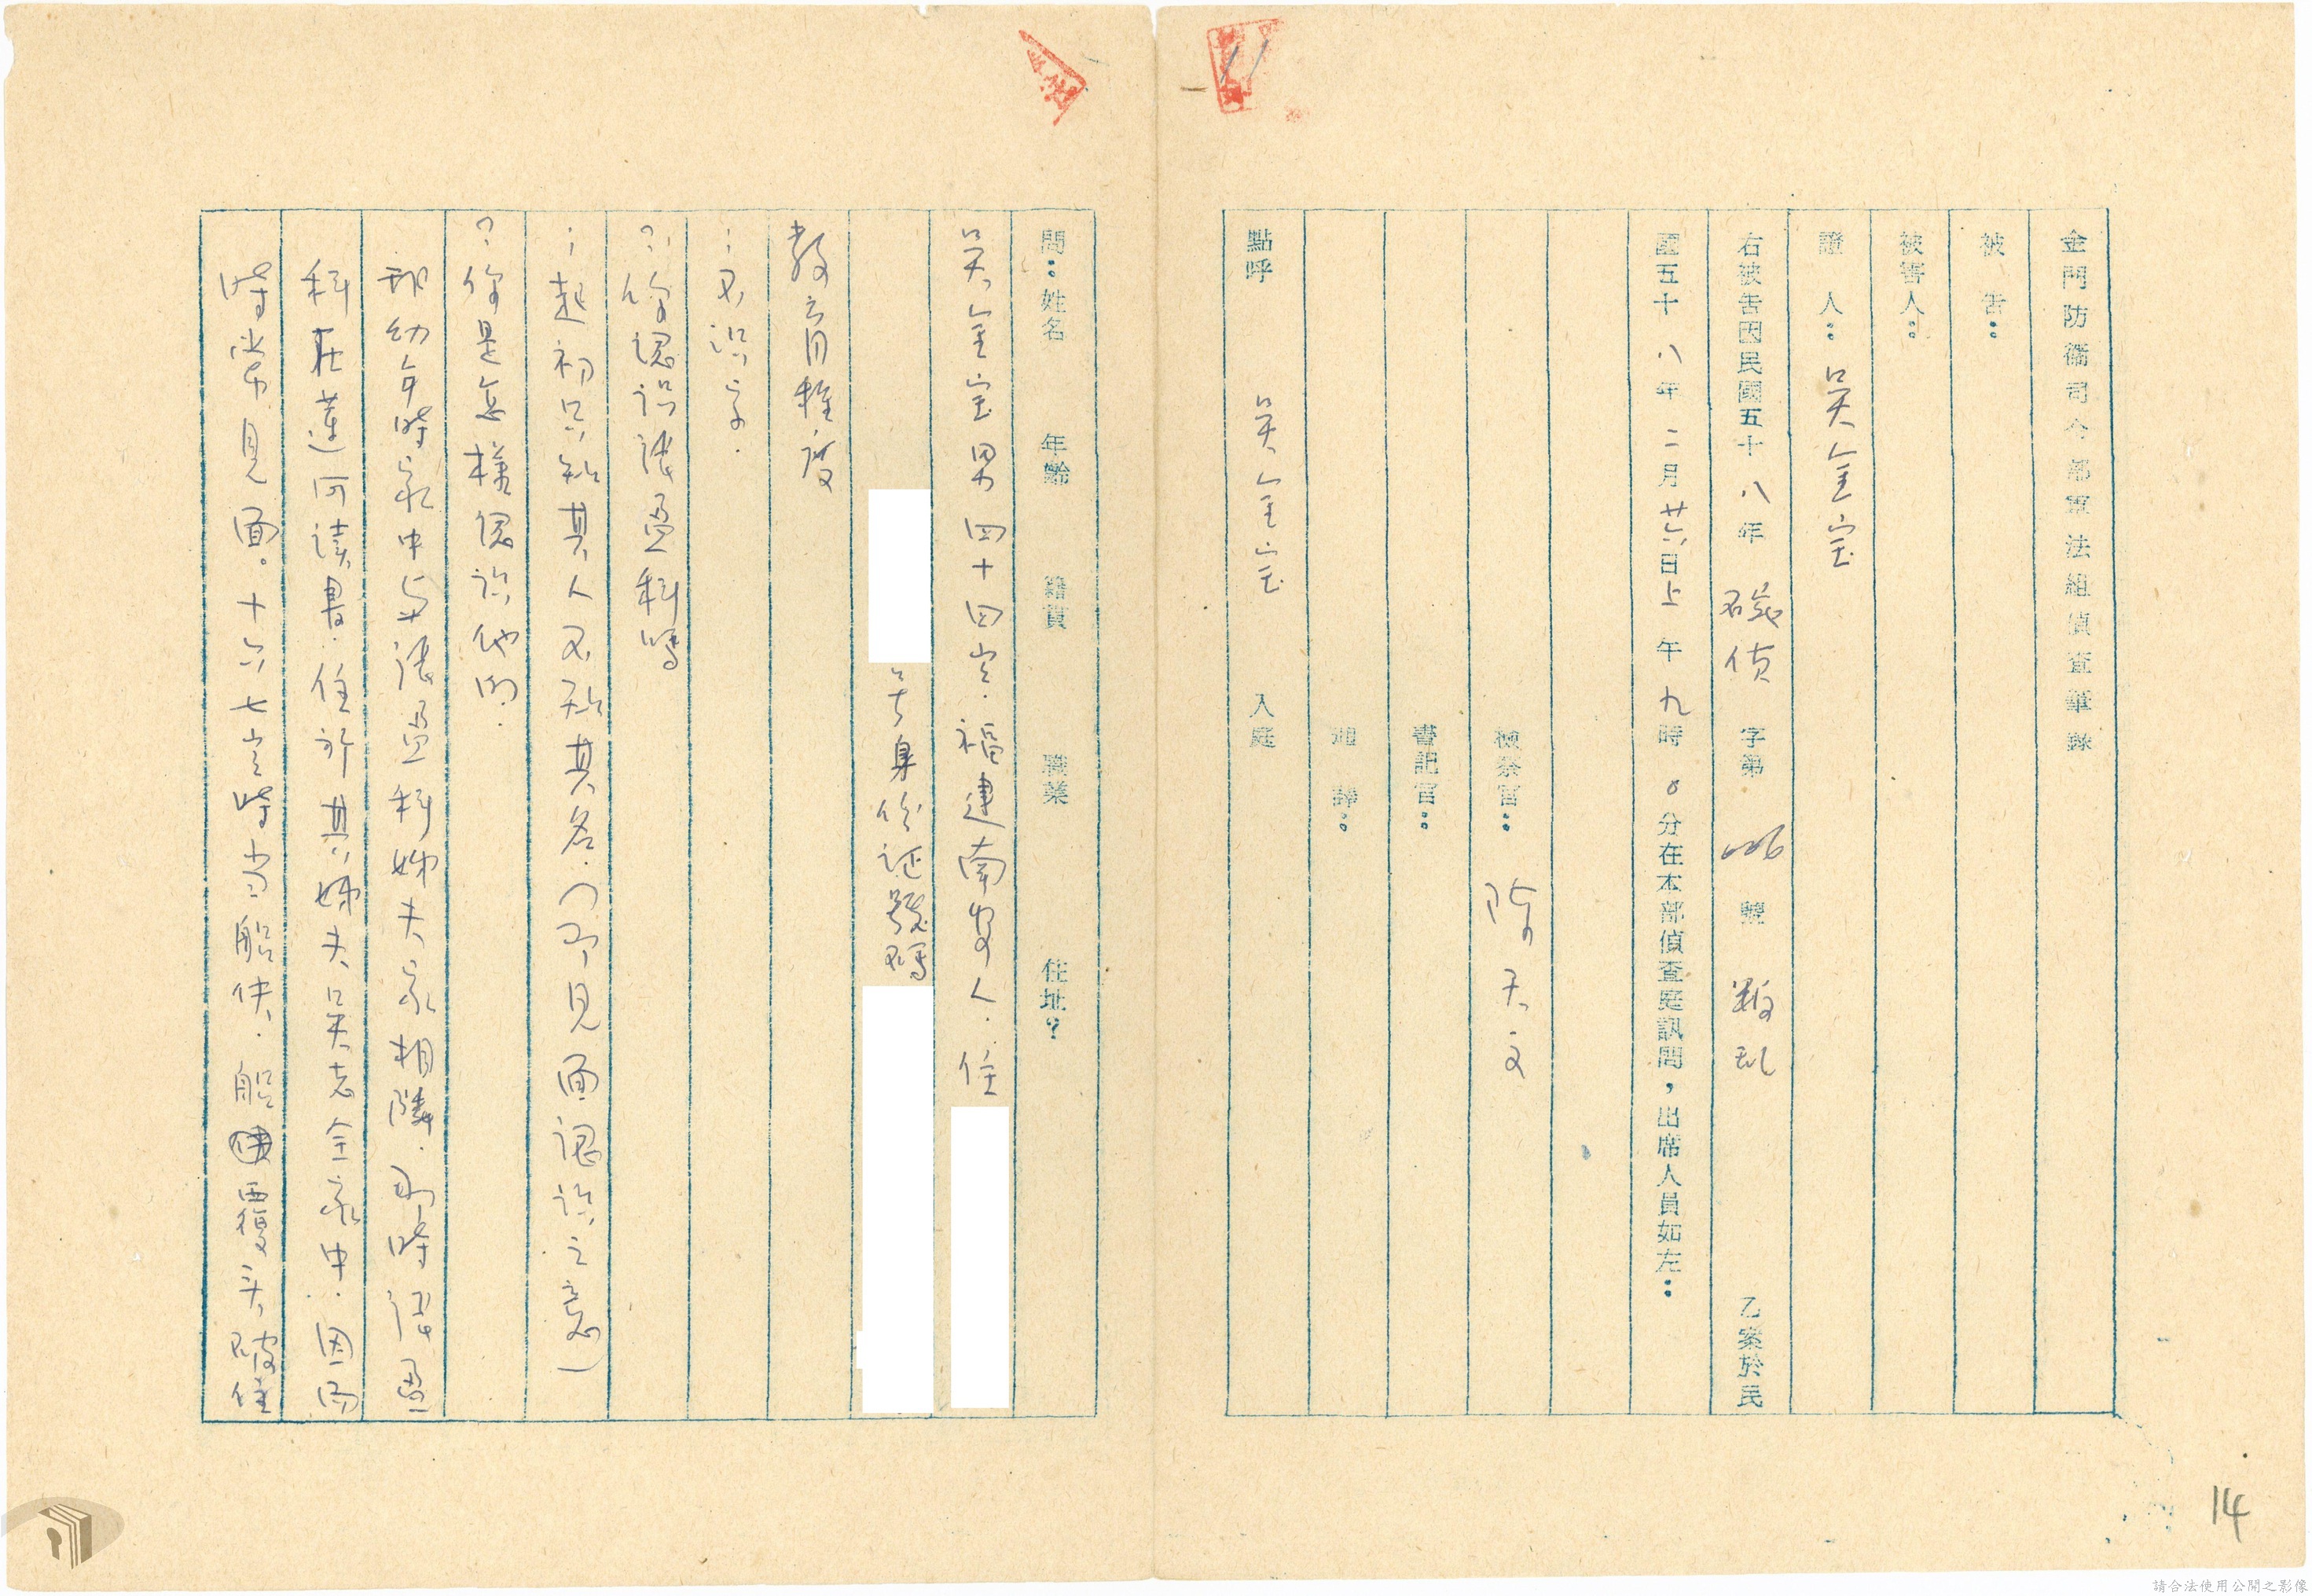 金門防衛司令部軍法組偵查筆錄
被 告：
被害人：
證 人：吳金宝
右被告因民國五十八年 偵 字第 號 叛乱 乙案於民
國五十八年二月廿六日上午九時0分在本部偵查庭訊問，出席人員如左：
檢察官： 天文
書記官：
通 譯：
點呼 吳金宝 入庭
問：姓名 年齡 籍貫 職業 住址？
吳金宝男四十四岁．福建南安人．住
号身份证號碼
教育程度
：不识字．
？：你認识洪 科嗎
：起初只知其人不知其名．（即見面認识之意）
？：你是怎樣認识他的．
我幼年時家中与洪 科姊夫家相隣．那時洪
科在蓮河讀書．住於其姊夫吳老全家中．因而
時常見面。十六七岁時當船伕．船 來
14
請合法使用公開之影像